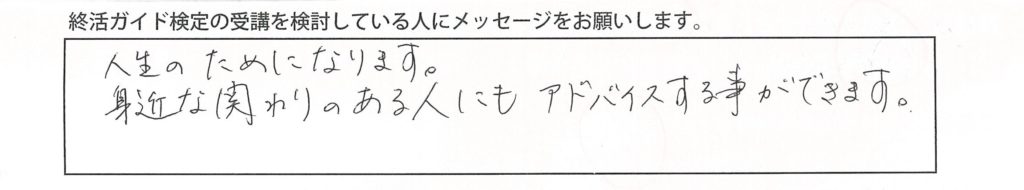 終活ガイド検定の受講を検討している人にメッセージをお願いします。
人生のためになります。
身近な関わりのある人にもアドバイスする事ができます。